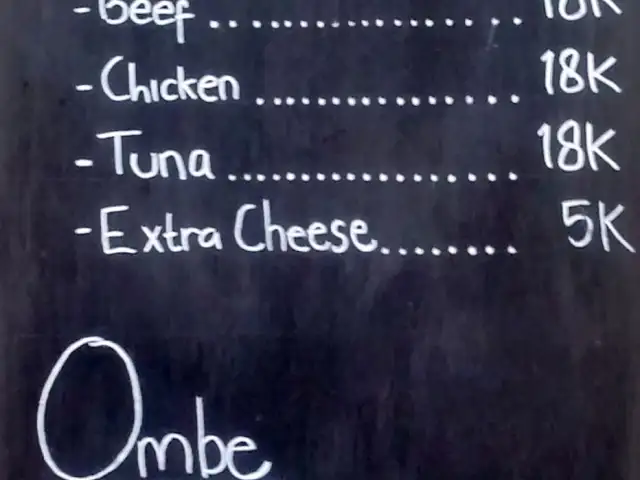 -Beef................ 18K
-Chicken .............. 18K
-Tuna ................ 18K
-Extra Cheese........ 5K
Ombe